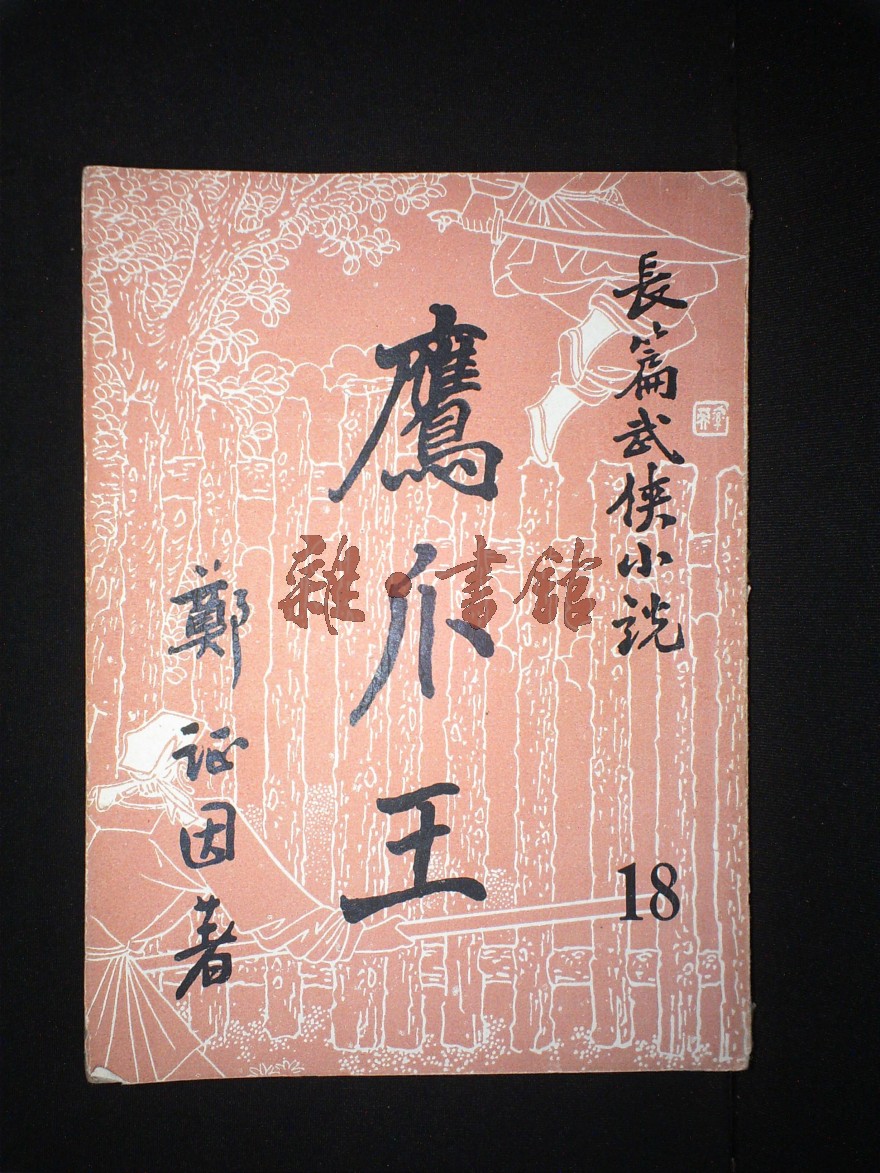 長篇武俠小説
鷹爪王
鄭证因著
18
雜·書館